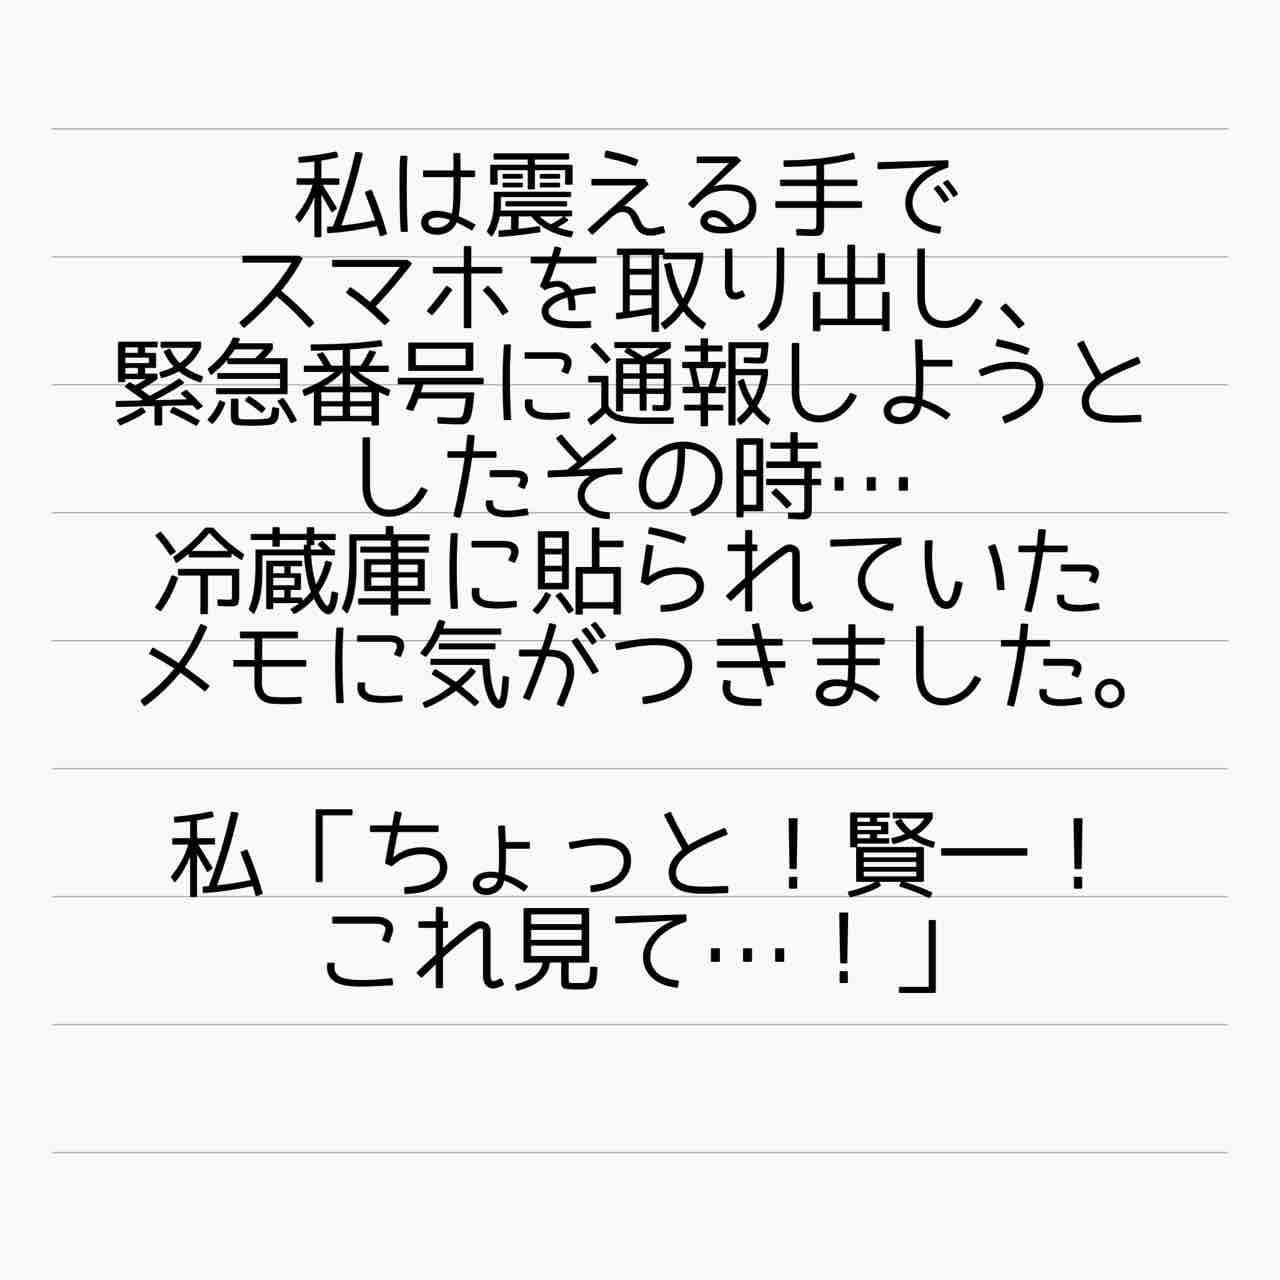 私は震える手で
スマホを取り出し、
緊急番号に通報しようと
したその時…
冷蔵庫に貼られていた
メモに気がつきました。
私「ちょっと！賢一！
これ見て…！」